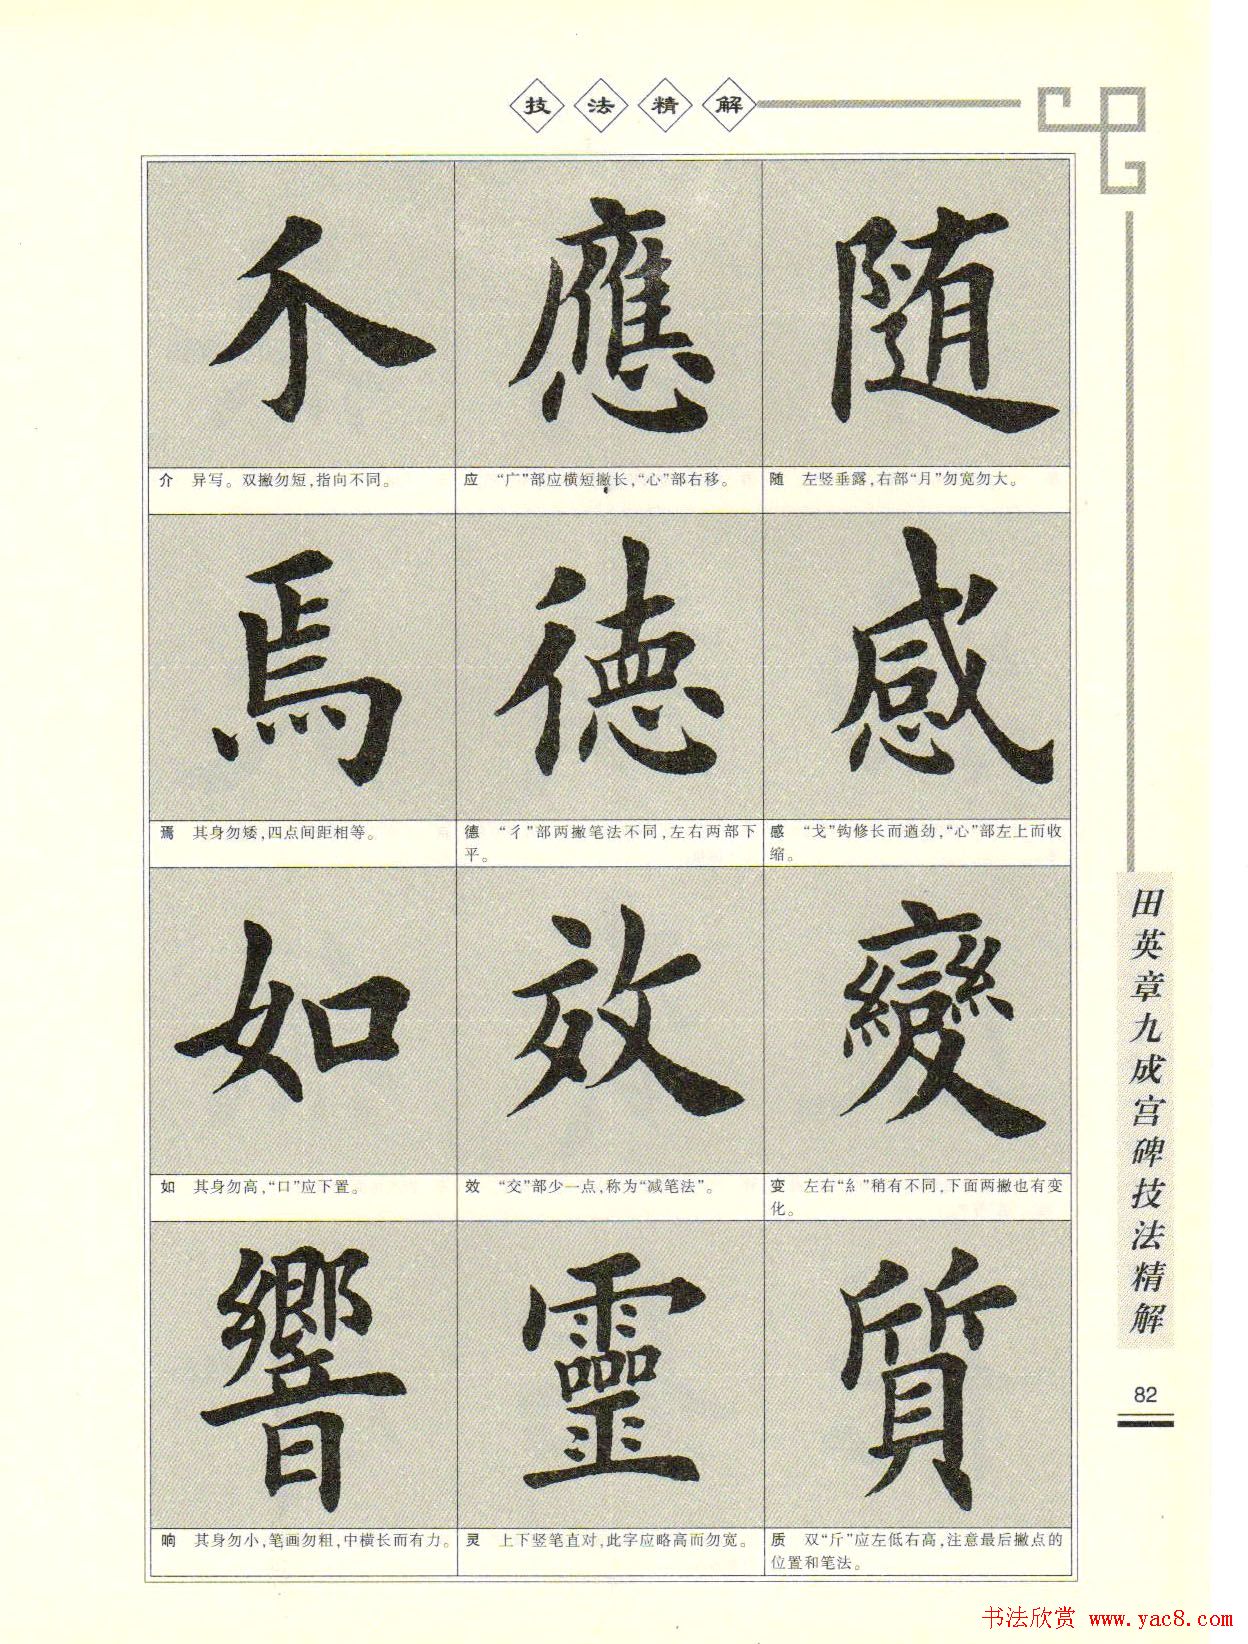 技法精解
不 應 随
介 异写。双撇勿短,指向不同。
应 “广”部应横短撇长,“心”部右移。
随 左竖垂露,右部“月”勿宽勿大。
焉 德 感
焉 其身勿矮,四点间距相等。
德 “彳”部两撇笔法不同,左右两部下
平。
感 “戈”钩修长而遒劲,“心”部左上而收
缩。
如 效 變
如 其身勿高,“口”应下置。
效 “交”部少一点,称为“减笔法”。
变 左右“糹”稍有不同,下面两撇也有变
化。
響 靈 質
响 其身勿小,笔画勿粗,中横长而有力。
灵 上下竖笔直对,此字应略高而勿宽。
质 双“斤”应左低右高,注意最后撇点的
位置和笔法。
田英章九成宫碑技法精解
82
书法欣赏 www.yac8.com